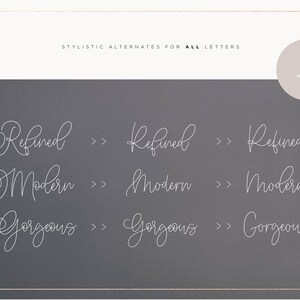 STYLISTIC ALTERNATES FOR ALL LETTERS
Refined >> Refined >> Refined
Modern >> Modern >> Modern
Gorgeous >> Gorgeous >> Gorgeous